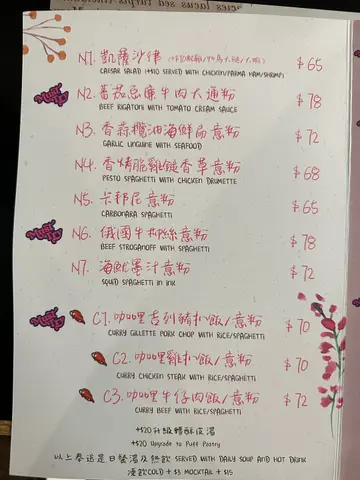 N1. 凱薩沙律 $65
CAESAR SALAD (+$10 SERVED WITH CHICKEN/PARMA HAM/SHRIMP)
N2. 蕃茄忌廉牛肉大通粉 $78
BEEF RIGATONI WITH TOMATO CREAM SAUCE
N3. 香蒜欖油海鮮扁意粉 $72
GARLIC LINGUINE WITH SEAFOOD
N4. 香精脆雞鎚香草意粉 $68
PESTO SPAGHETTI WITH CHICKEN DRUMETTE
N5. 卡邦尼意粉 $65
CARBONARA SPAGHETTI
N6. 俄國牛柳絲意粉 $78
BEEF STROGANOFF WITH SPAGHETTI
N7. 海鮮墨汁意粉 $72
SQUID SPAGHETTI in ink
C1. 咖喱吉列豬扒飯/意粉 $70
CURRY GILLETTE PORK CHOP WITH RICE/SPAGHETTI
C2. 咖喱雞扒飯/意粉 $70
CURRY CHICKEN STEAK WITH RICE/SPAGHETTI
C3. 咖喱牛仔肉飯/意粉 $72
CURRY BEEF WITH RICE/SPAGHETTI
+$20升級轉酥皮湯
+$20 Upgrade to Puff Pastry
以上奉送是日餐湯及熱飲 SERVED WITH DAILY SOUP AND HOT DRINK
凍飲COLD + $3 MOCKTAIL + $15